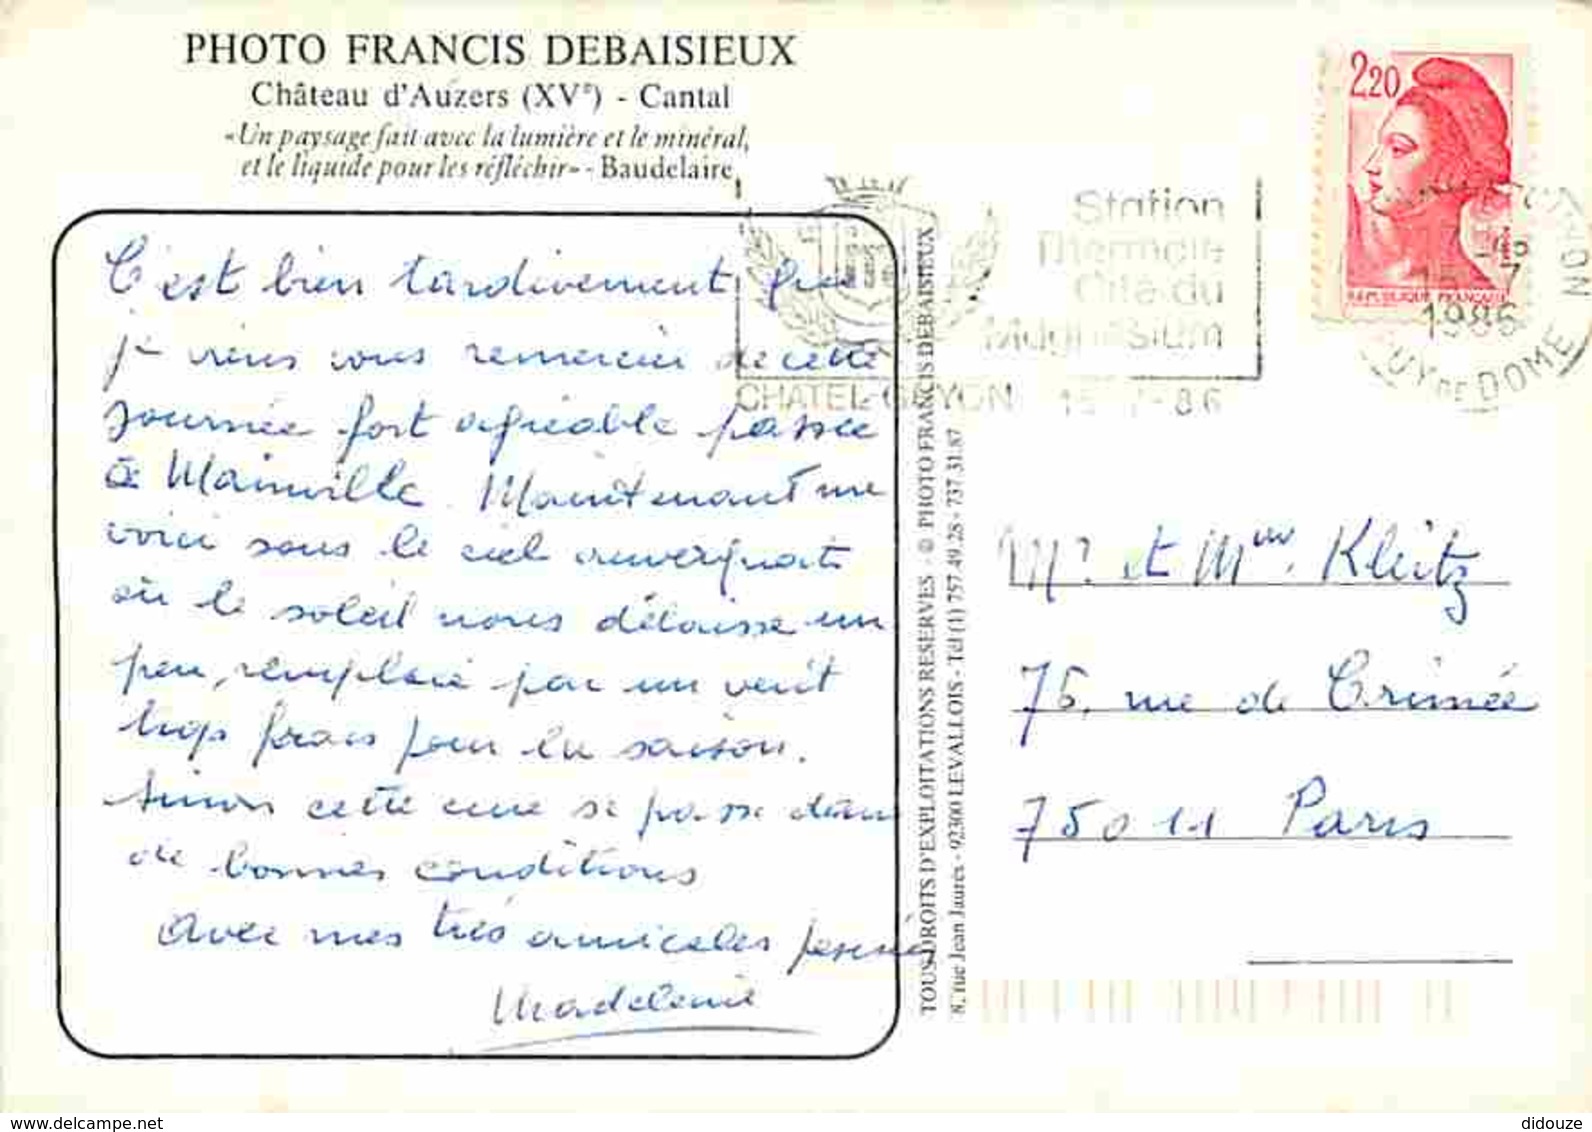 PHOTO FRANCIS DEBAISIEUX
Château d'Auzers (XVe) - Cantal
«Un paysage fait avec la lumière et le minéral,
et le liquide pour les réfléchir» - Baudelaire
C'est bien tardivement que
je viens vous remercier de cette
journée fort agréable passée
à Mainville. Maintenant me
voici sous le ciel auvergnat
où le soleil nous délaisse un
peu, remplacé par un vent
trop frais pour la saison.
Sinon cette cure se passe dans
de bonnes conditions
Avec mes très amicales pensées
Madeleine
TOUS DROITS D'EXPLOITATIONS RESERVES - © PHOTO FRANCIS DEBAISIEUX
8, rue Jean Jaurès - 92300 LEVALLOIS - Tél (1) 757.49.28 - 737.31.87
Station
Thermale
Cité du
Magnésium
CHATEL-GUYON 15-7-86
2,20
REPUBLIQUE FRANÇAISE
15-7
1986
PUY DE DOME
Mr. et Mme. Kleitz
75, rue de Crimée
75011 Paris
delcampe.net
didouze